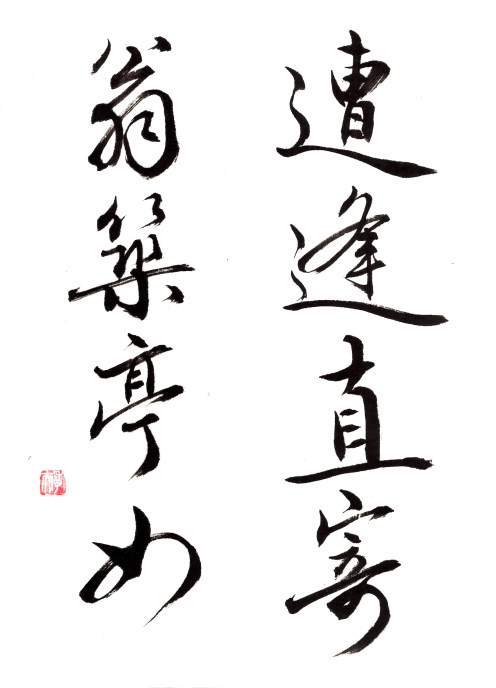 遭逢直寄
翁築亭如